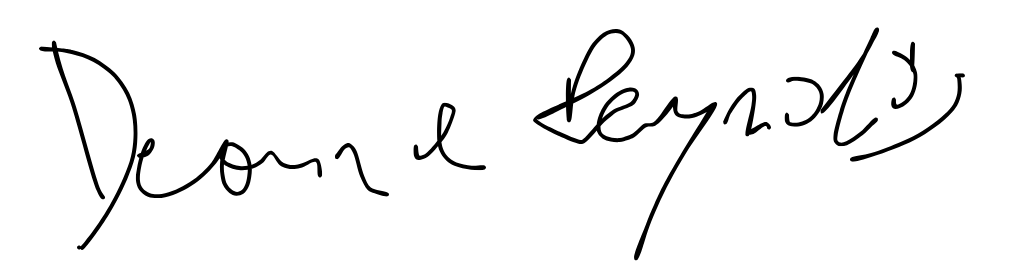 Deanne Reynolds